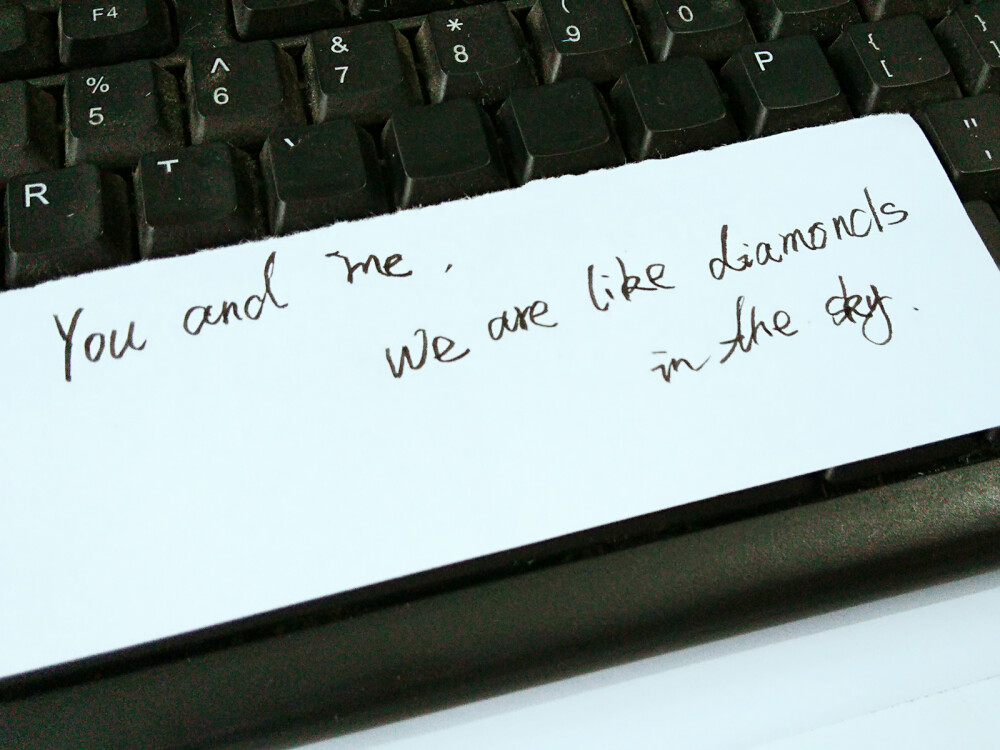 F4
% ^ & * ( 0
5 6 7 8 9
R T P { [ } ]
" '
You and me,
We are like diamonds
in the sky.